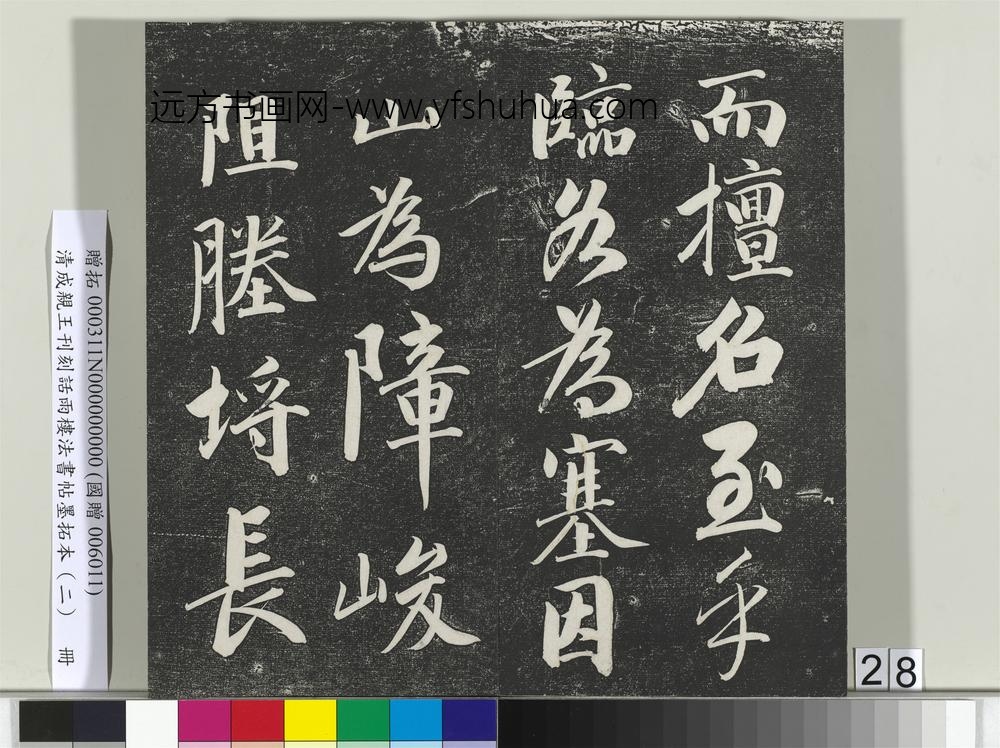 而擅名至乎
臨谷為塞因
山為障峻
阻塍埒長
远方书画网-www.yfshuhua.com
贈拓 000311N000000000 (國贈 006011)
清成親王刊刻話雨樓法書帖墨拓本(二) 冊
28